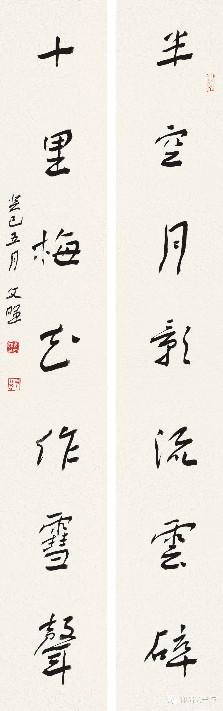 半空月影流雲碎
十里梅花作雪聲
癸巳五月 文暉